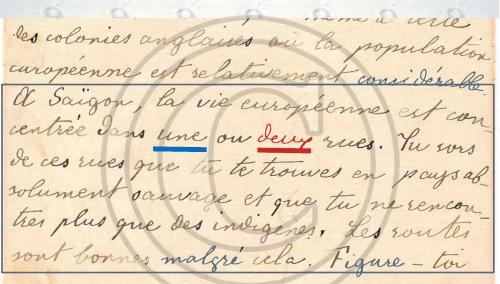 même à cette
des colonies anglaises où la population
européenne est relativement considérable.
A Saïgon, la vie européenne est con-
centrée dans une ou deux rues. Tu sors
de ces rues que tu te trouves en pays ab-
solument sauvage et que tu ne rencon-
tres plus que des indigènes. Les routes
sont bonnes malgré cela. Figure-toi